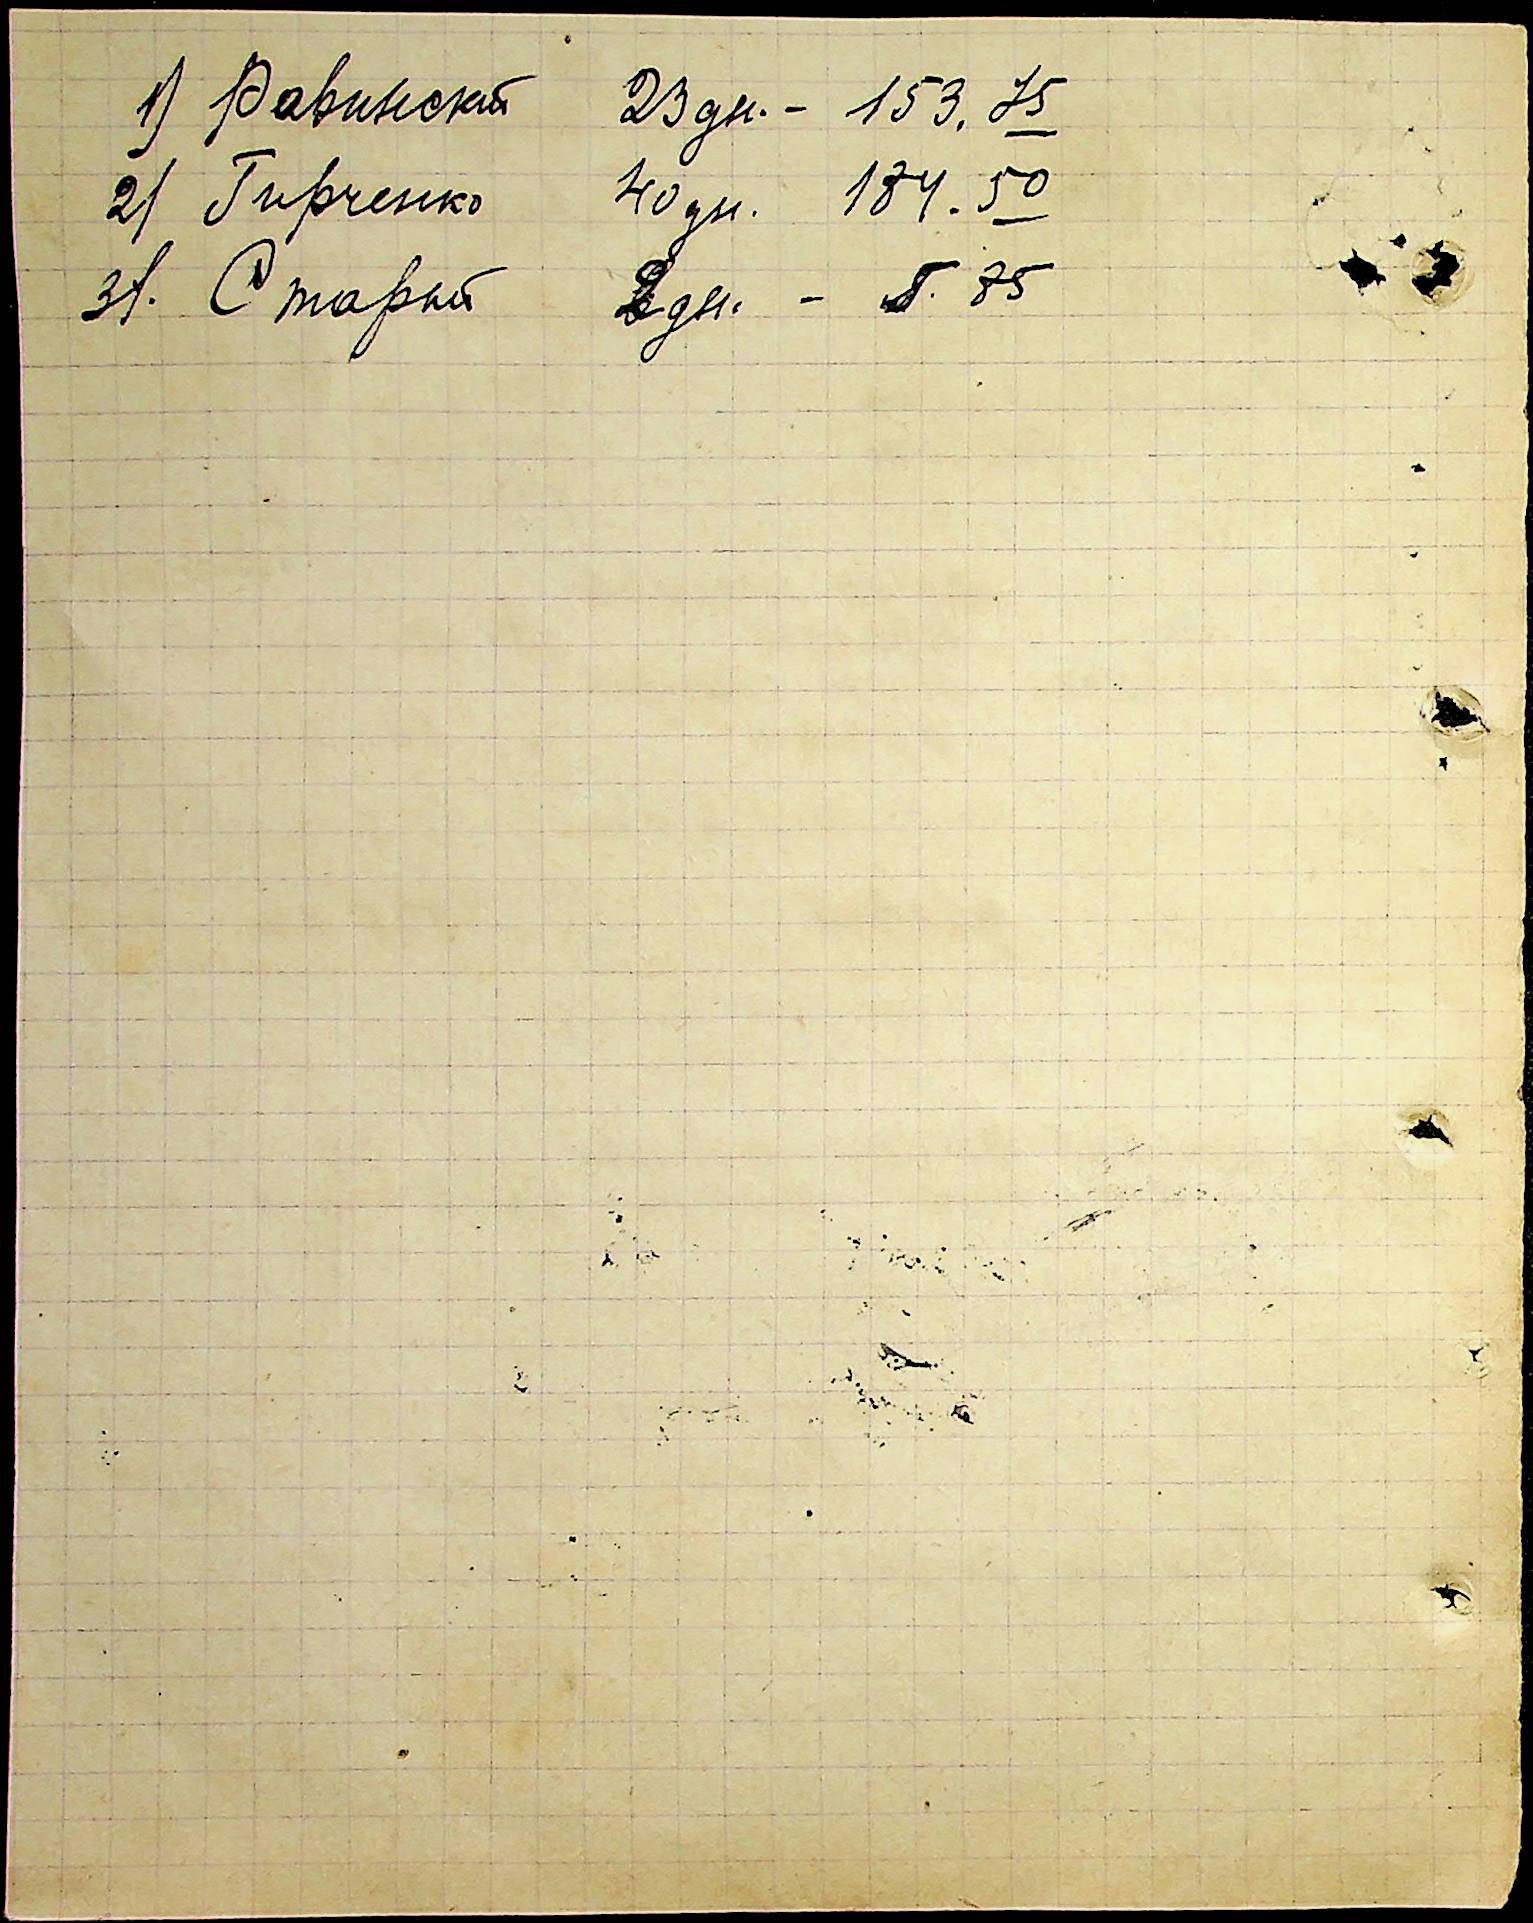 1) Равинский 23 дн. - 153. 75
2) Гирченко 40 дн. 184. 50
3). Старый 2 дн. - 5. 75